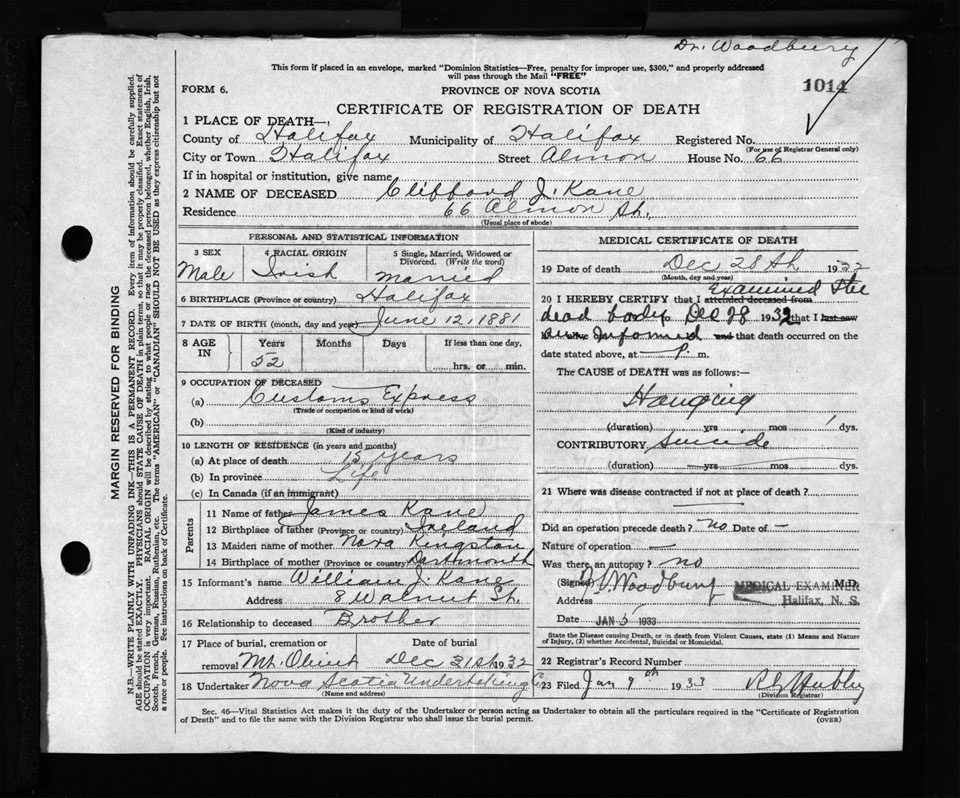 Dr. Woodbury
This form if placed in an envelope, marked "Dominion Statistics—Free, penalty for improper use, $300," and properly addressed
will pass through the Mail "FREE"
1014
FORM 6.
PROVINCE OF NOVA SCOTIA
CERTIFICATE OF REGISTRATION OF DEATH
1 PLACE OF DEATH—
County of Halifax Municipality of Halifax Registered No.
(For use of Registrar General only)
City or Town Halifax Street Almon House No. 66
If in hospital or institution, give name
2 NAME OF DECEASED Clifford J. Kane
Residence 66 Almon St.
(Usual place of abode)
PERSONAL AND STATISTICAL INFORMATION
3 SEX
Male
4 RACIAL ORIGIN
Irish
5 Single, Married, Widowed or
Divorced. (Write the word)
Married
6 BIRTHPLACE (Province or country) Halifax
7 DATE OF BIRTH (month, day and year) June 12, 1881
8 AGE
IN
Years
52
Months
Days
If less than one day,
hrs. or min.
9 OCCUPATION OF DECEASED
(a) Customs Express
(Trade or occupation or kind of work)
(b)
(Kind of industry)
10 LENGTH OF RESIDENCE (in years and months)
(a) At place of death 15 years
(b) In province Life
(c) In Canada (if an immigrant)
Parents
11 Name of father James Kane
12 Birthplace of father (Province or country) Ireland
13 Maiden name of mother Nora Kingston
14 Birthplace of mother (Province or country) Dartmouth
15 Informant's name William J. Kane
Address 8 Walnut St.
16 Relationship to deceased Brother
17 Place of burial, cremation or Date of burial
removal Mt. Olivet Dec 31st 1932
18 Undertaker Nova Scotia Undertaking Co
(Name and address)
MEDICAL CERTIFICATE OF DEATH
19 Date of death Dec 28th 1932
(Month, day and year)
Examined the
20 I HEREBY CERTIFY that I attended deceased from
dead body Dec 28 1932 that I last saw
Informed and that death occurred on the
date stated above, at P. m.
The CAUSE of DEATH was as follows:—
Hanging
(duration) yrs mos 1 dys.
CONTRIBUTORY Suicide
(duration) yrs mos dys.
21 Where was disease contracted if not at place of death?
Did an operation precede death? no Date of —
Nature of operation —
Was there an autopsy? no
(Signed) Woodbury M.D.
MEDICAL EXAMINER
Address Halifax, N. S.
Date JAN 5 1933
State the Disease causing Death, or in death from Violent Causes, state (1) Means and Nature
of Injury, (2) whether Accidental, Suicidal or Homicidal.
22 Registrar's Record Number
23 Filed Jan 9th 1933
(Division Registrar)
Sec. 46—Vital Statistics Act makes it the duty of the Undertaker or person acting as Undertaker to obtain all the particulars required in the "Certificate of Registration
of Death" and to file the same with the Division Registrar who shall issue the burial permit.
(OVER)
MARGIN RESERVED FOR BINDING
N.B.—WRITE PLAINLY WITH UNFADING INK—THIS IS A PERMANENT RECORD. Every item of information should be carefully supplied.
AGE should be stated EXACTLY. PHYSICIANS should STATE CAUSE OF DEATH in plain terms, so that it may be properly classified. Exact statement of
OCCUPATION is very important. RACIAL ORIGIN will be described by stating to what people or race the deceased person belonged, whether English, Irish,
Scotch, French, German, Russian, Ruthenian, etc. The terms "AMERICAN" or "CANADIAN" SHOULD NOT BE USED as they express citizenship but not
a race or people. See instructions on back of Certificate.